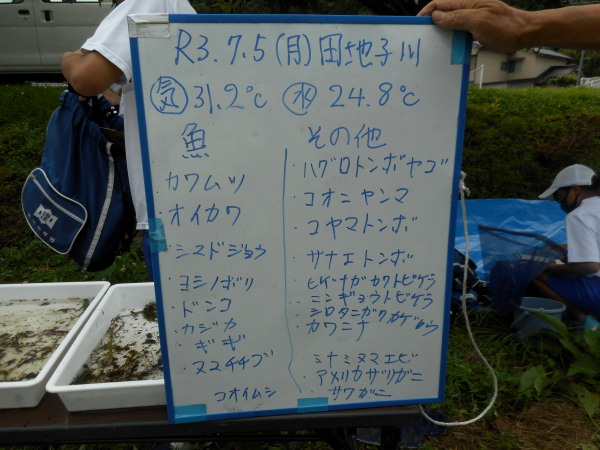 R3.7.5(月)田地子川
気 31.2℃ 水 24.8℃
魚
・カワムツ
・オイカワ
・シマドジョウ
・ヨシノボリ
・ドンコ
・カジカ
・ギギ
・ヌマチチブ
コオイムシ
その他
・ハグロトンボヤゴ
・コオニヤンマ
・コヤマトンボ
・サナエトンボ
・ヒゲナガカワトビケラ
・ニンギョウトビケラ
・シロタニガワカゲロウ
・カワニナ
・ミナミヌマエビ
・アメリカザリガニ
サワガニ